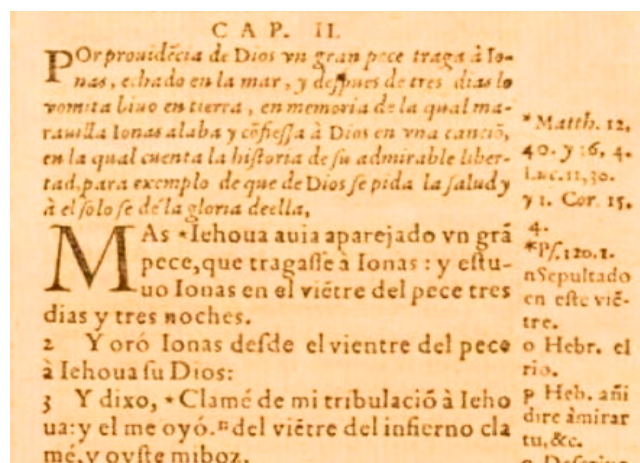 CAP. II.
POr prouidẽcia de Dios vn gran pece traga à Io-
nas, echado en la mar, y deſpues de tres dias lo
vomita biuo en tierra, en memoria de la qual ma-
rauilla Ionas alaba y cõfieſſa à Dios en vna canciõ,
en la qual cuenta la hiſtoria de ſu admirable liber-
tad, para exemplo de que de Dios ſe pida la ſalud y
à el ſolo ſe dé la gloria deella,
MAs *Iehoua auia aparejado vn grã
pece, que tragaſſe à Ionas: y eſtu-
uo Ionas en el viẽtre del pece tres
dias y tres noches.
2 Y oró Ionas deſde el vientre del pece
à Iehoua ſu Dios:
3 Y dixo, *Clamé de mi tribulaciõ à Ieho
ua: y el me oyó. ⁿ del viẽtre del infierno cla
mé, y oyſte mi boz.
*Matth. 12,
40. y 16, 4.
Luc. 11, 30.
y 1. Cor. 15.
4.
*Pſ. 120.1.
n Sepultado
en eſte viẽ-
tre.
o Hebr. el
rio.
p Heb. añi
dire àmirar
tu, &c.